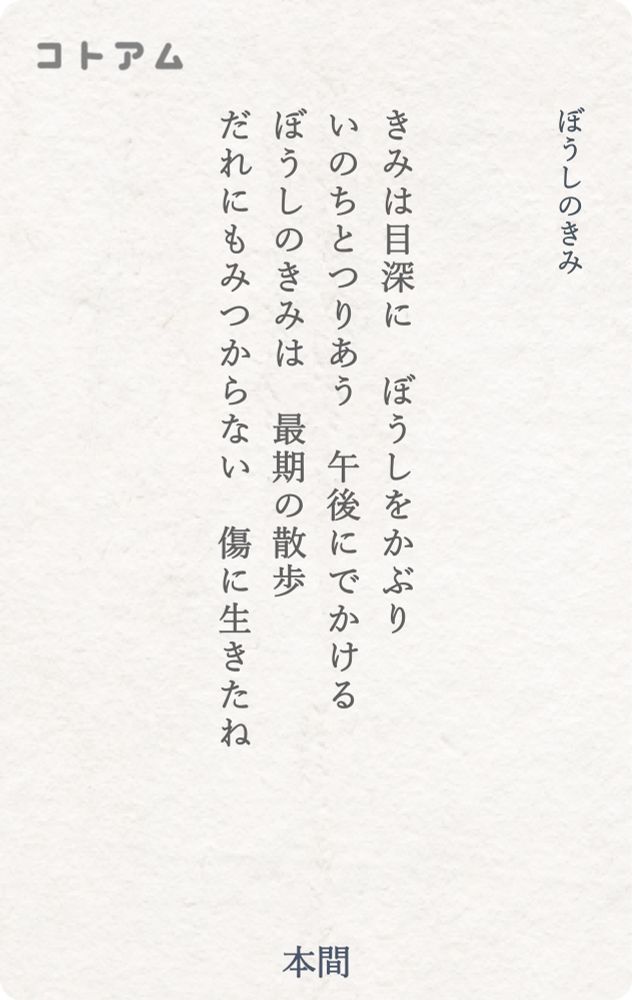 コトアム
ぼうしのきみ
きみは目深に　ぼうしをかぶり
いのちとつりあう　午後にでかける
ぼうしのきみは　最期の散歩
だれにもみつからない　傷に生きたね
本間